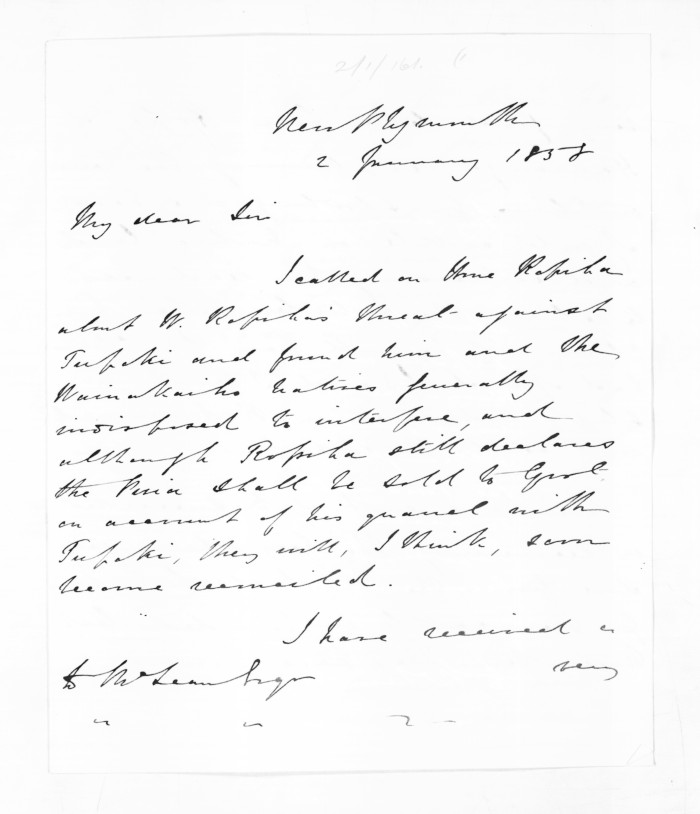 New Plymouth
2 January 1858
My dear Sir
I called on Hone Ropiha
about W. Ropiha's threat against
Tupoki and found him and the
Waiwakaiho natives generally
indisposed to interfere, and
although Ropiha still declares
the Piria shall be sold to Govt.
on account of his quarrel with
Tupoki, they will, I think, soon
become reconciled.
I have received a
very
McLean Esqr